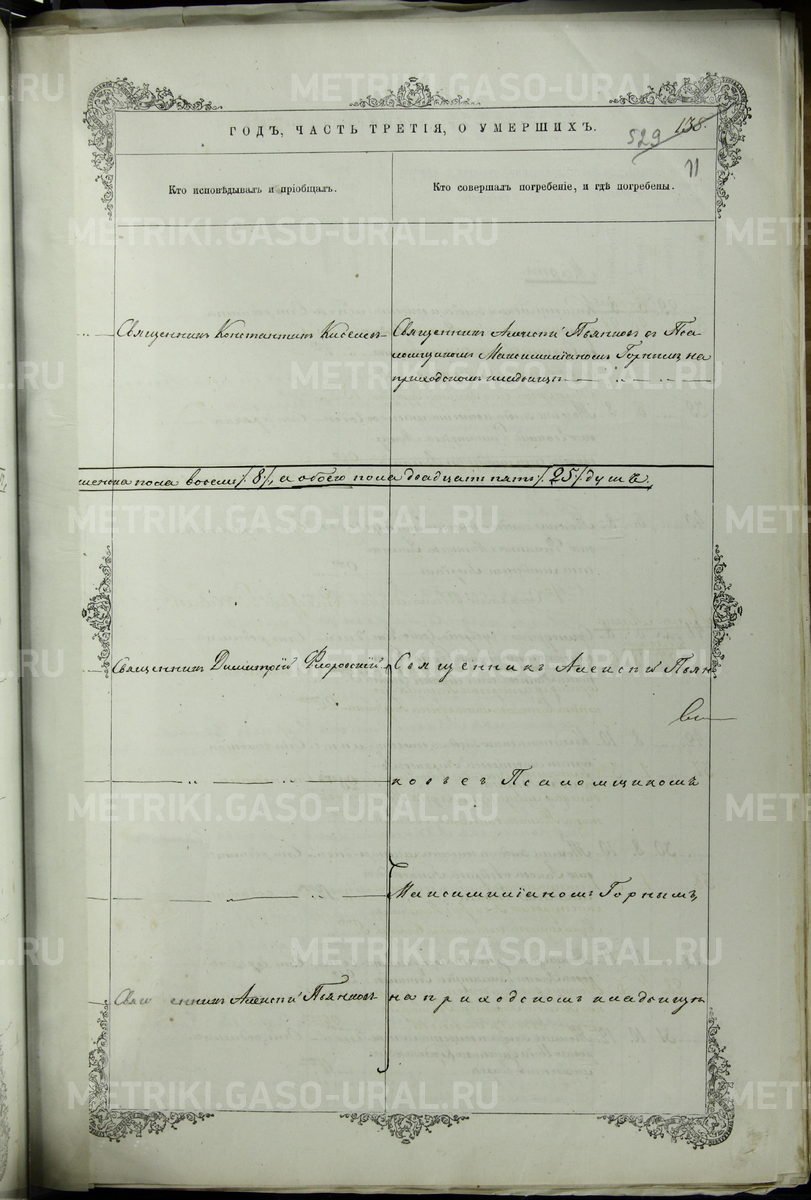 METRIKI.GASO-URAL.RU
ГОДЪ, ЧАСТЬ ТРЕТІЯ, О УМЕРШИХЪ.
529 138.
71
Кто исповѣдывалъ и пріобщалъ.
Кто совершалъ погребеніе, и гдѣ погребены.
Священникъ Константинъ Киселевъ
Священникъ Алексѣй Пьянковъ съ Пса
ломщикомъ Максимиліаномъ Горнымъ, на
приходскомъ кладбищѣ
женска пола восемь /8/, а обоего пола двадцать пять /25/ душъ.
Священникъ Димитрій Флоровскій
Священникъ Алексѣй Пьян
ковъ съ Псаломщикомъ
Максимиліаномъ Горнымъ,
Священникъ Алексѣй Пьянковъ
на приходскомъ кладбищѣ